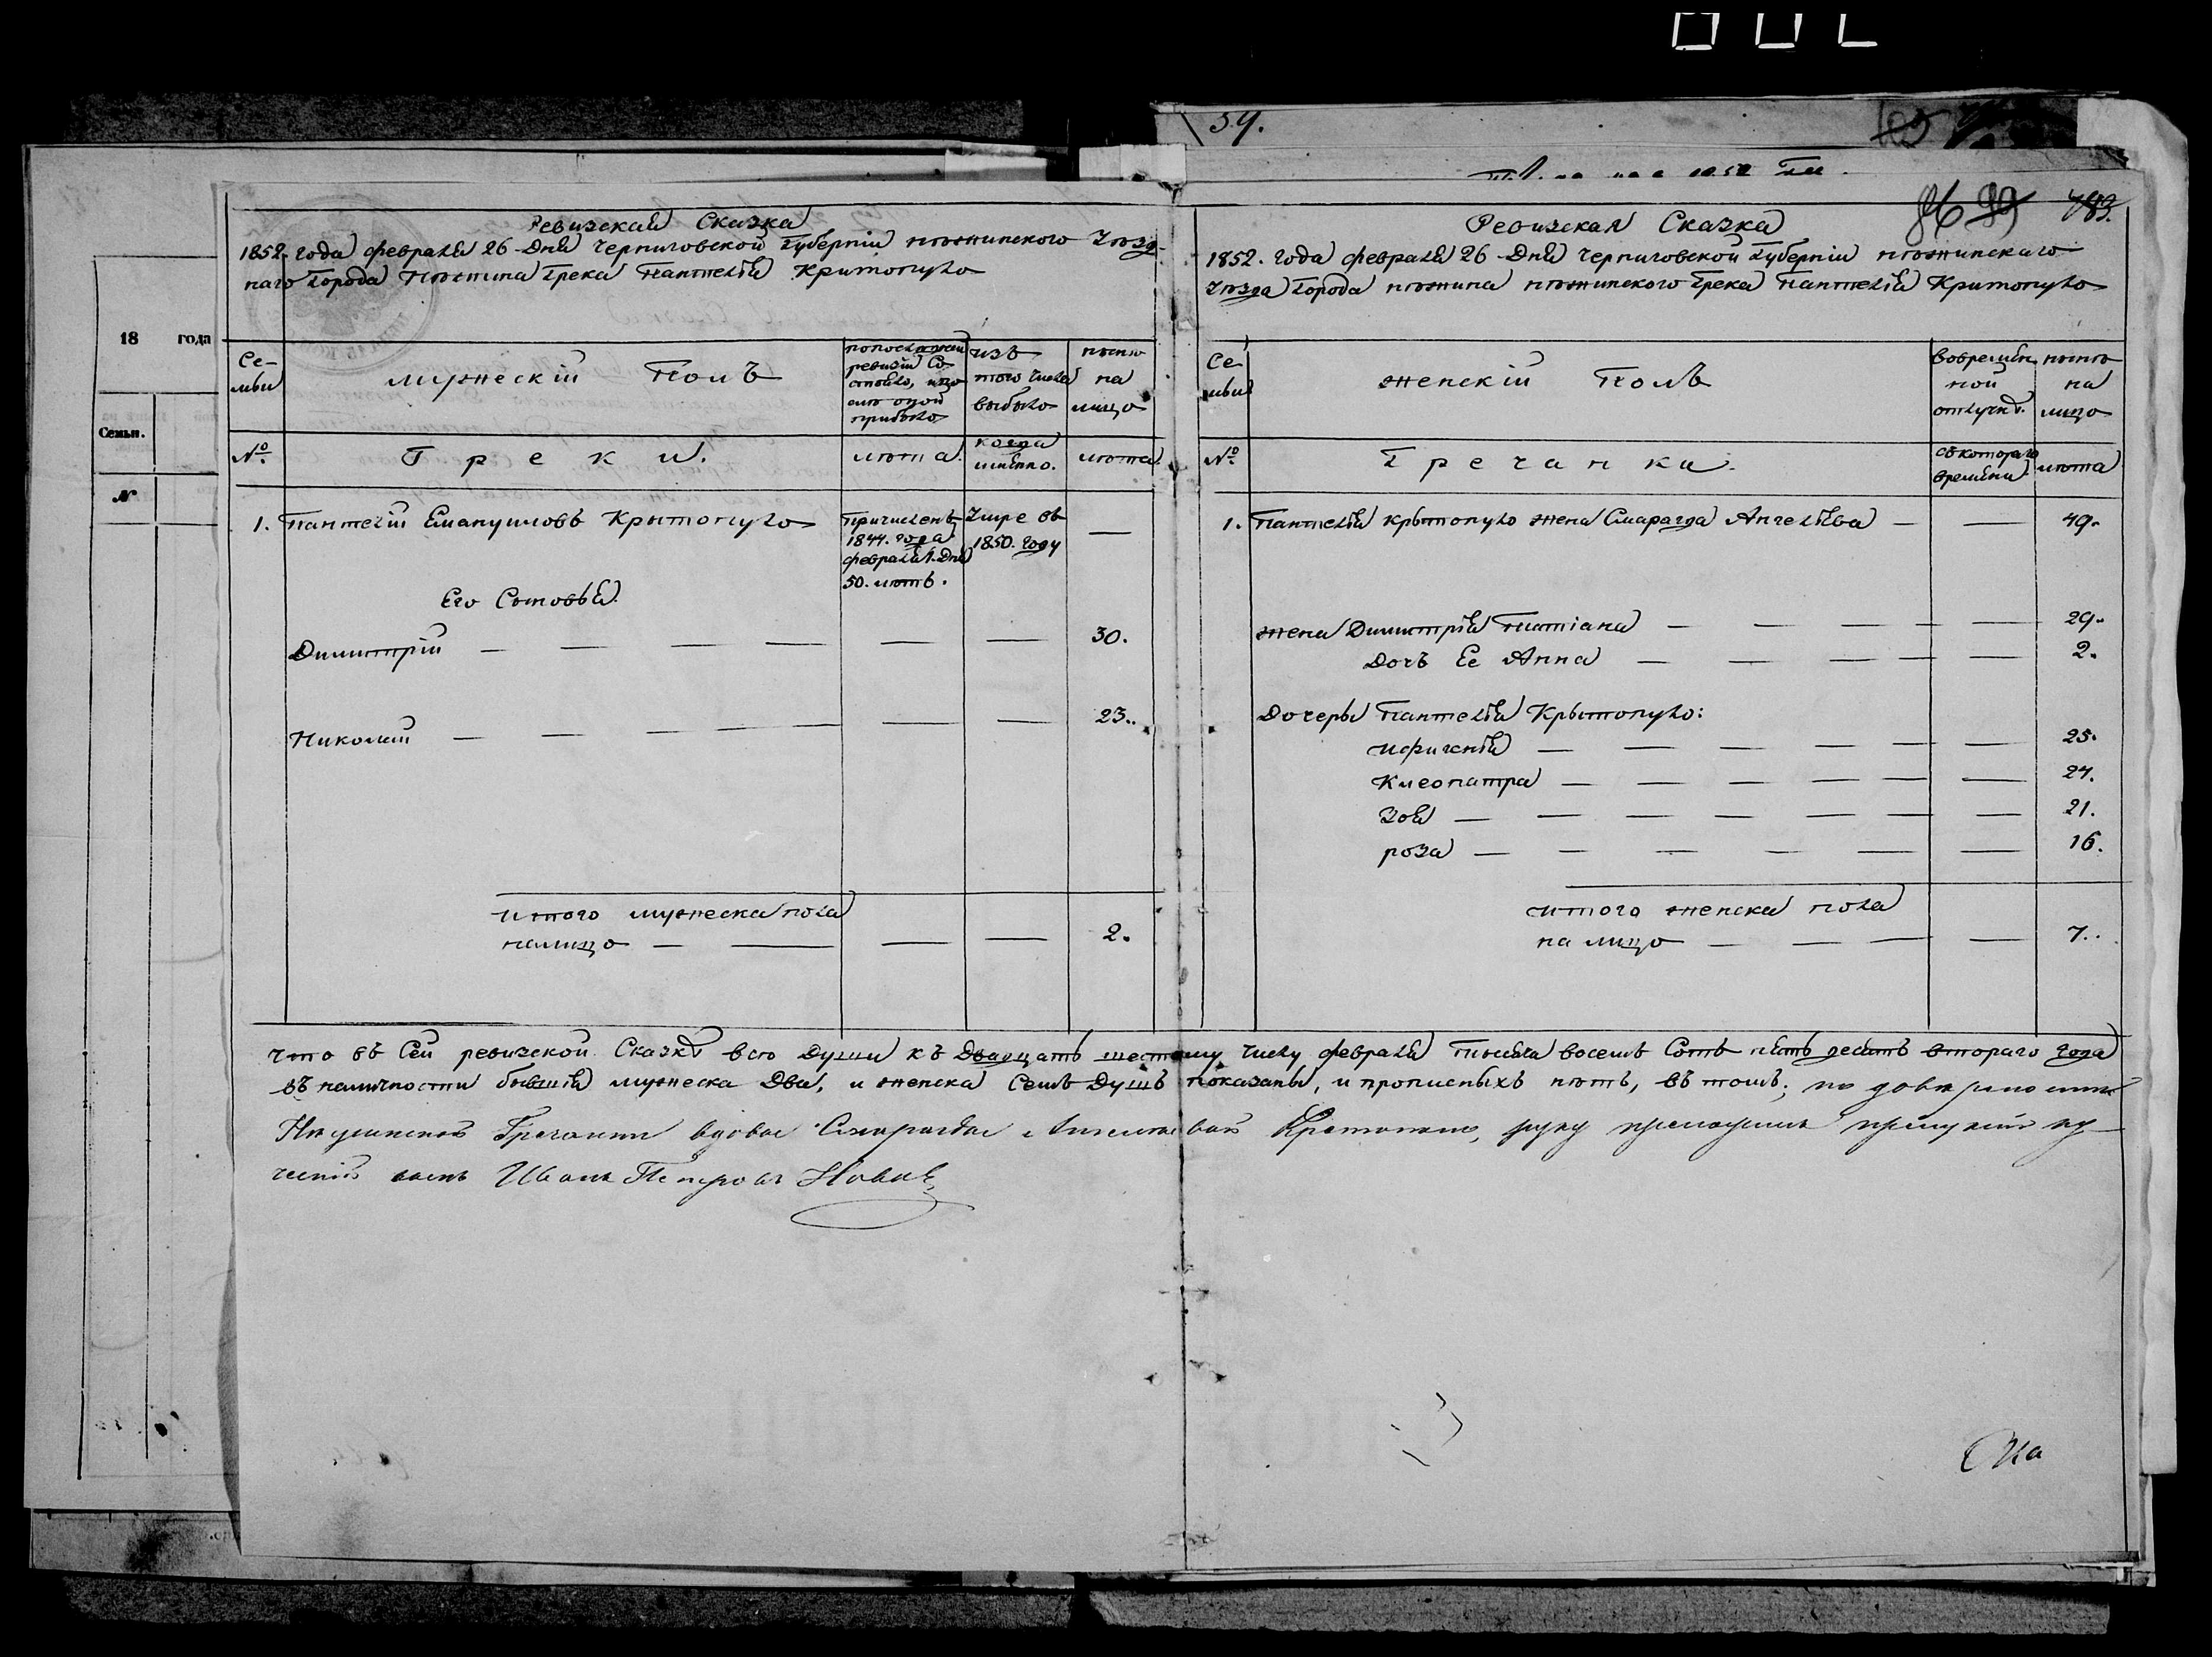 59.
86 99 483.
18 года
Семьи.
№
Ревизская Сказка
1852. года февраля 26 Дня Черниговской Губерніи нѣжинского Уѣзд-
наго Города Нѣжина Грека Пантелѣя Критопуло
Се-
мьи
мужескій Полъ
попоследней
ревизіи Со-
стояло, и по
слѣ оной
прибыло
изъ
того числа
выбыло
ныне
на
лицо
№
Греки.
лѣта.
когда
имѣнно.
лѣта.
1. Пантелѣй Емануиловъ Крытопуло
Причисленъ
1844. года
февраля 1. Дня
50. лѣтъ.
Умре въ
1850. году
—
Его Сыновья.
Димитрій — — — — — — 30.
Николай — — — — — — 23.
итого мужеска пола
налицо — — — — 2.
Ревизская Сказка
1852. года февраля 26 Дня Черниговской Губерніи нѣжинскаго
Уѣзда Города нѣжина нѣжинского Грека Пантелѣя Критопуло
Се-
мьи
женскій Полъ
вовремѣн-
ной
отлучкѣ.
ныне
на
лицо
№
Гречанки.
съкотораго
времѣни.
лѣта
1. Пантелѣя Крытопуло жена Смарагда Ангелѣева — — 49.
жена Димитрія Татіана — — — — — 29.
Дочь Ее Анна — — — — — 2.
Дочеры Пантелѣя Крытопуло:
Ифигенія — — — — — — 25.
Клеопатра — — — — — — 24.
Зоя — — — — — — — 21.
роза — — — — — — 16.
итого женска пола
на лицо — — — — 7.
Что въ Сей ревизской Сказкѣ всѣ Души къ Двадцать шестому Числу февраля тысяча восемь Сотъ пять десять втораго года
въ наличности бывшія мужеска Два, и женска Семь Душъ показаны, и прописныхъ нѣтъ, въ томъ; по довѣренности
Нѣжинской Гречанки вдовы Смарагды Ангелѣевой Критопуло, руку приложилъ
Иванъ Петровъ